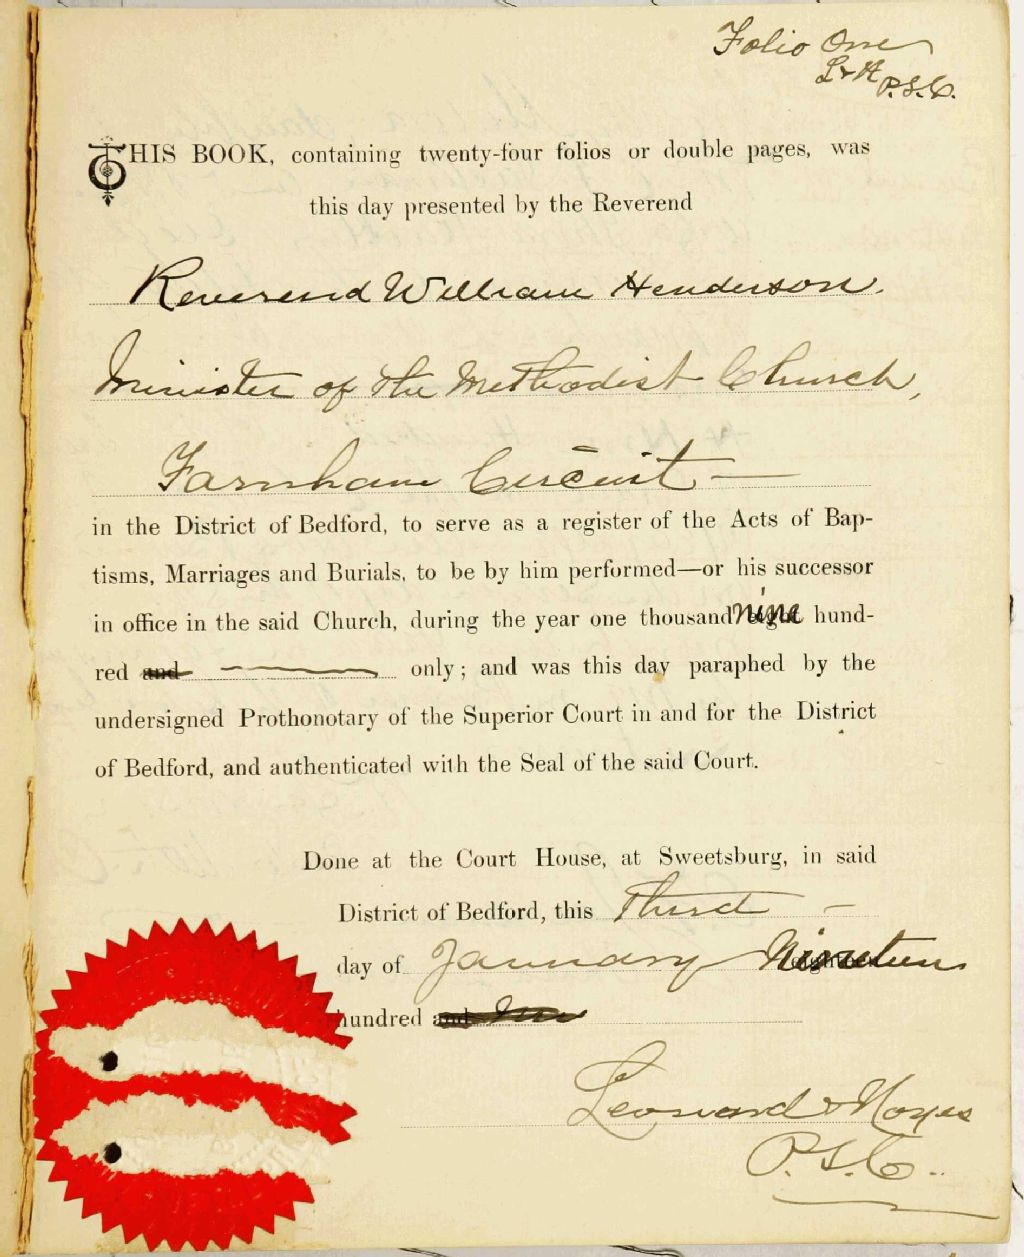 Folio One
L & N
P.S.C.
THIS BOOK, containing twenty-four folios or double pages, was
this day presented by the Reverend
Reverend William Henderson.
Minister of the Methodist Church,
Farnham Circuit —
in the District of Bedford, to serve as a register of the Acts of Bap-
tisms, Marriages and Burials, to be by him performed—or his successor
in office in the said Church, during the year one thousand nine hund-
red and only; and was this day paraphed by the
undersigned Prothonotary of the Superior Court in and for the District
of Bedford, and authenticated with the Seal of the said Court.
Done at the Court House, at Sweetsburg, in said
District of Bedford, this Third —
day of January Nineteen
hundred and
Leonard & Noyes
P.S.C.